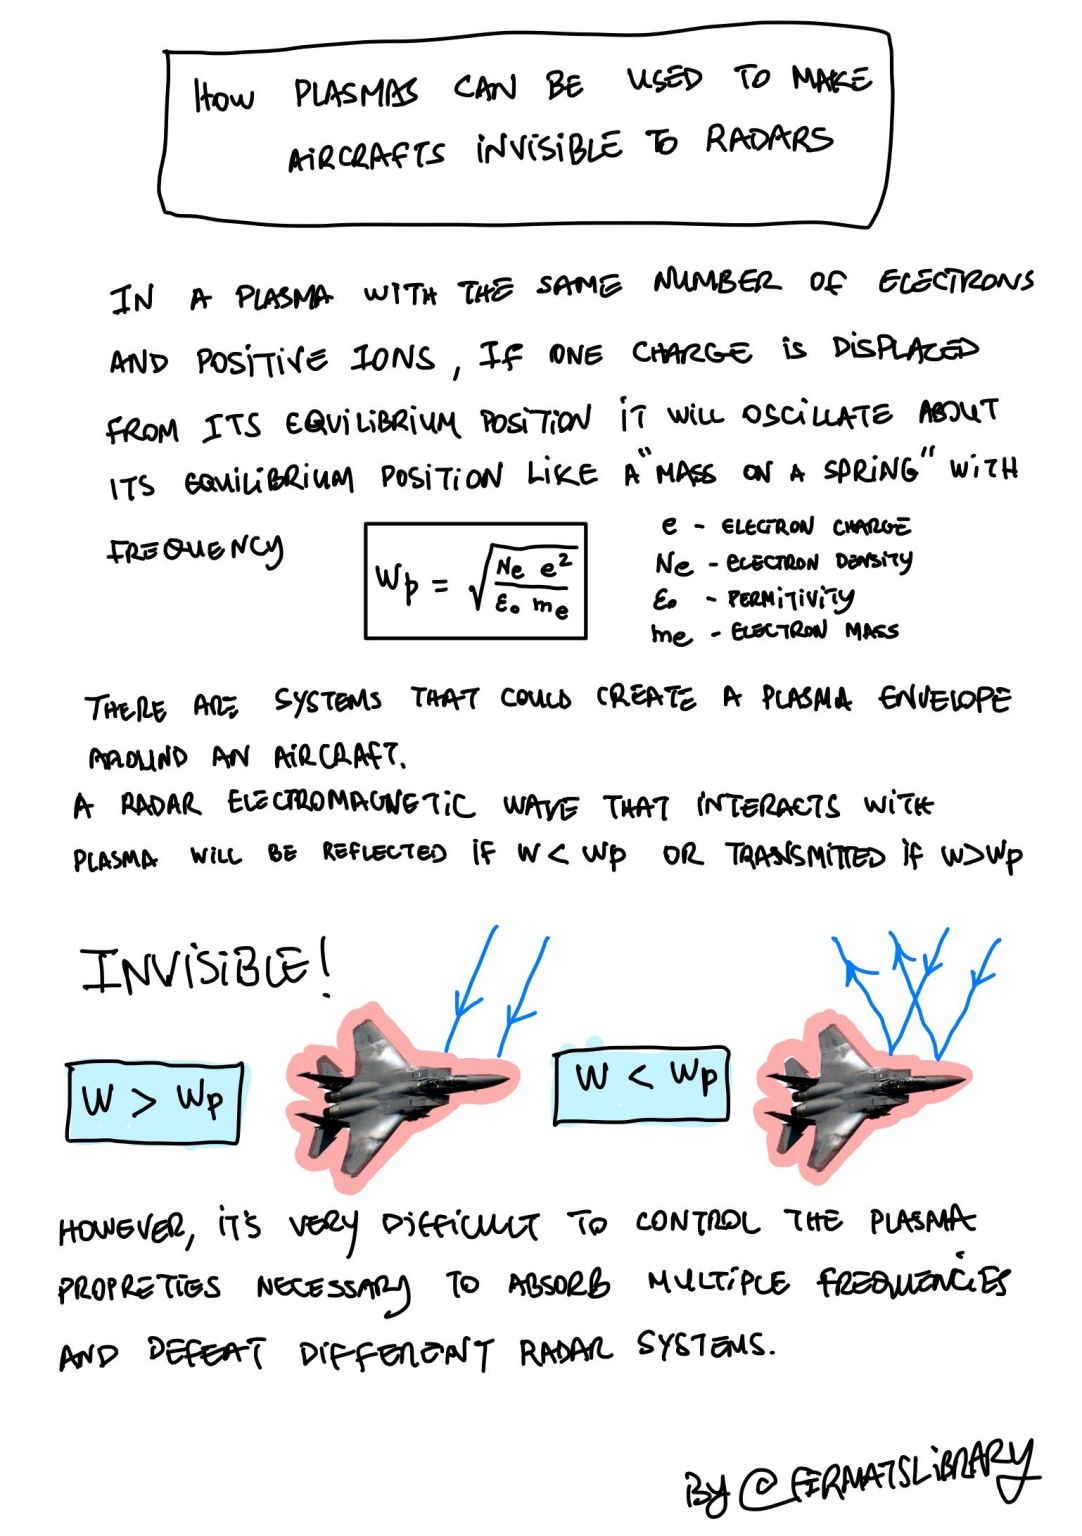 HOW PLASMAS CAN BE USED TO MAKE
AIRCRAFTS INVISIBLE TO RADARS
IN A PLASMA WITH THE SAME NUMBER OF ELECTRONS
AND POSITIVE IONS, IF ONE CHARGE IS DISPLACED
FROM ITS EQUILIBRIUM POSITION IT WILL OSCILLATE ABOUT
ITS EQUILIBRIUM POSITION LIKE A "MASS ON A SPRING" WITH
FREQUENCY
Wp = √(Ne e² / ε₀ me)
e - ELECTRON CHARGE
Ne - ELECTRON DENSITY
ε₀ - PERMITIVITY
me - ELECTRON MASS
THERE ARE SYSTEMS THAT COULD CREATE A PLASMA ENVELOPE
AROUND AN AIRCRAFT.
A RADAR ELECTROMAGNETIC WAVE THAT INTERACTS WITH
PLASMA WILL BE REFLECTED IF W < Wp OR TRANSMITTED IF W > Wp
INVISIBLE!
W > Wp
W < Wp
HOWEVER, IT'S VERY DIFFICULT TO CONTROL THE PLASMA
PROPRETIES NECESSARY TO ABSORB MULTIPLE FREQUENCIES
AND DEFEAT DIFFERENT RADAR SYSTEMS.
BY @FERMATSLIBRARY